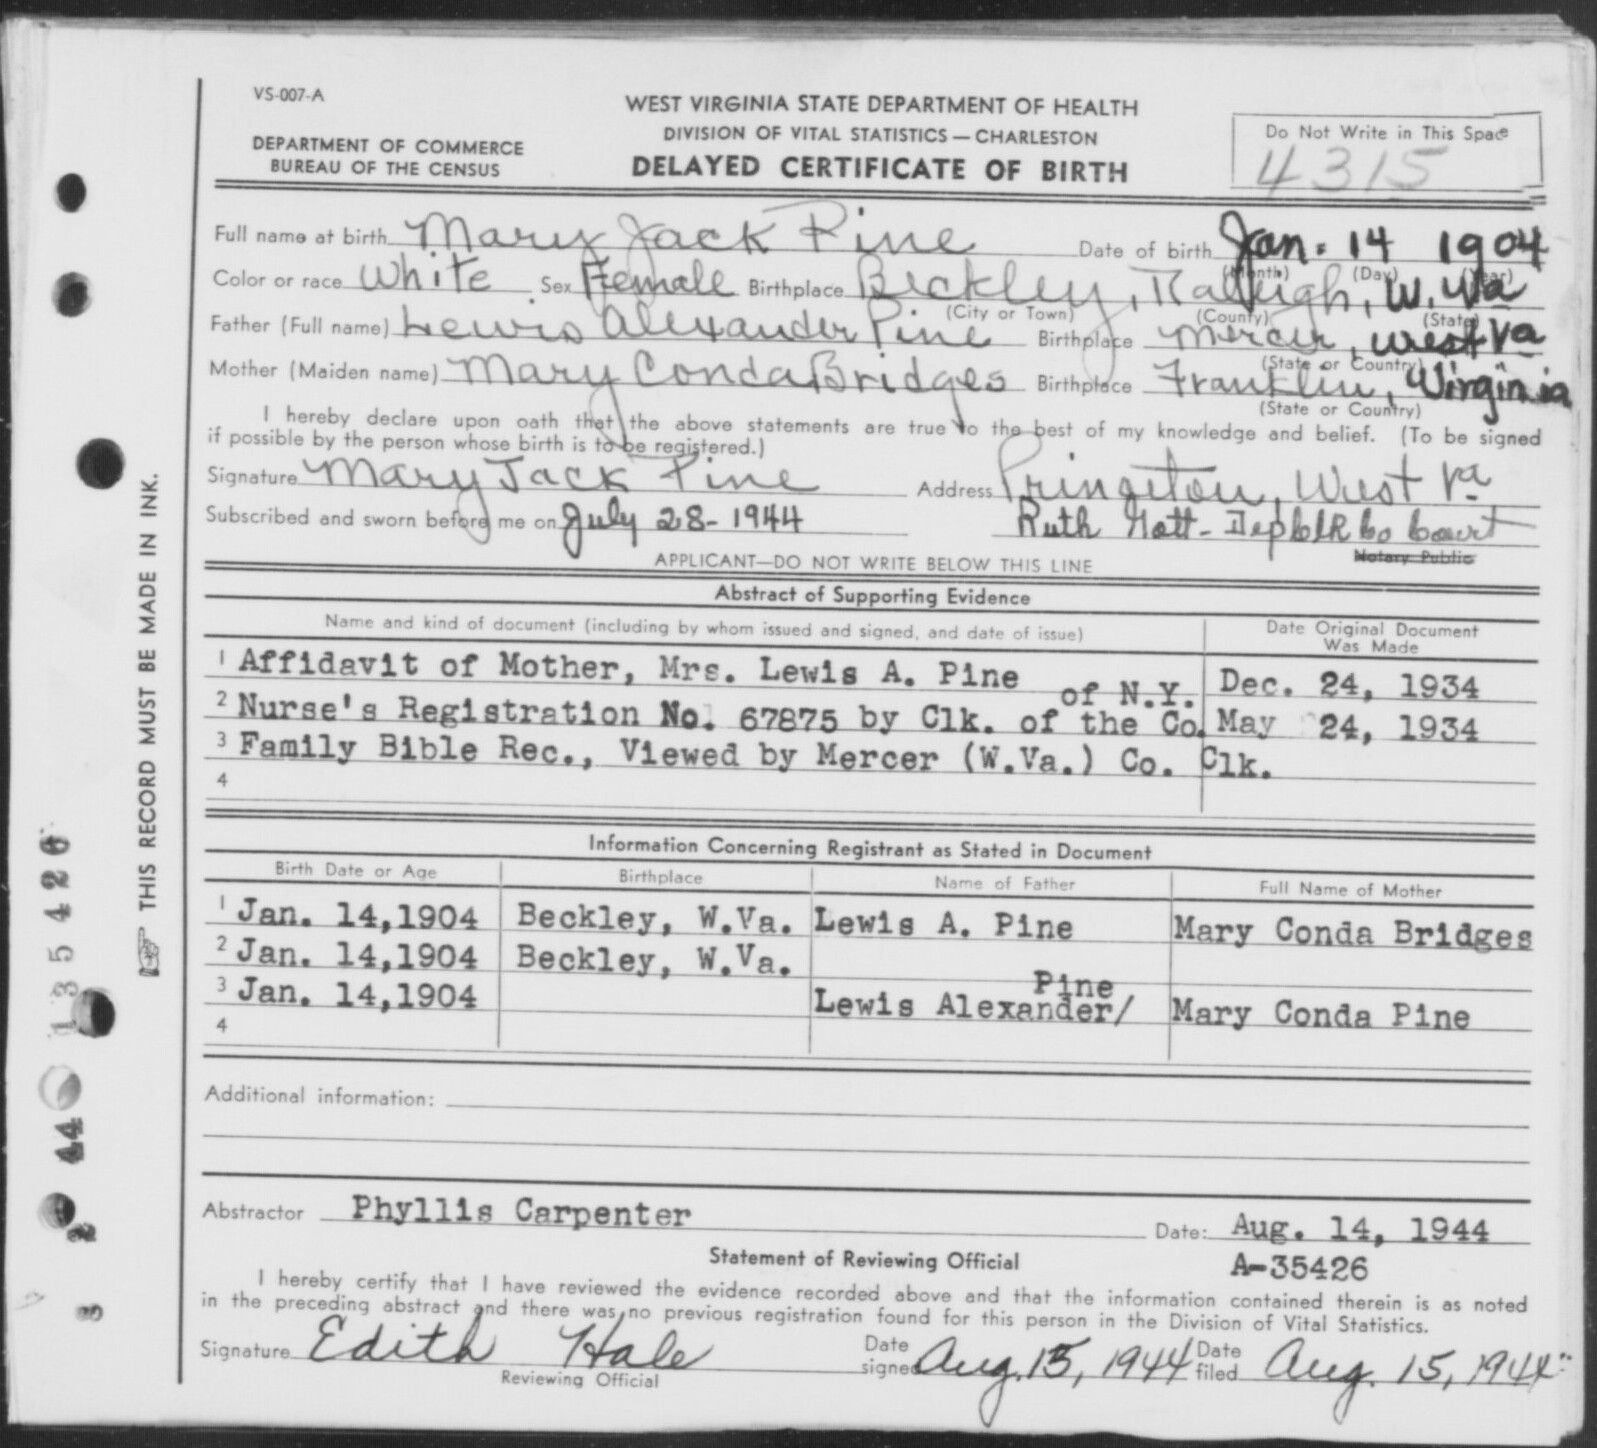 VS-007-A
DEPARTMENT OF COMMERCE
BUREAU OF THE CENSUS
WEST VIRGINIA STATE DEPARTMENT OF HEALTH
DIVISION OF VITAL STATISTICS — CHARLESTON
DELAYED CERTIFICATE OF BIRTH
Do Not Write in This Space
4315
Full name at birth Mary Jack Pine Date of birth Jan. 14 1904
(Month) (Day) (Year)
Color or race White Sex Female Birthplace Beckley, Raleigh, W. Va
(City or Town) (County) (State)
Father (Full name) Lewis Alexander Pine Birthplace Mercer, West Va
(State or Country)
Mother (Maiden name) Mary Conda Bridges Birthplace Franklin, Virginia
(State or Country)
I hereby declare upon oath that the above statements are true to the best of my knowledge and belief. (To be signed
if possible by the person whose birth is to be registered.)
Signature Mary Jack Pine Address Princeton, West Va
Subscribed and sworn before me on July 28-1944 Ruth Gott - Dep Clk Co Court
Notary Public
APPLICANT—DO NOT WRITE BELOW THIS LINE
Abstract of Supporting Evidence
Name and kind of document (including by whom issued and signed, and date of issue) Date Original Document Was Made
1 Affidavit of Mother, Mrs. Lewis A. Pine Dec. 24, 1934
of N.Y.
2 Nurse's Registration No. 67875 by Clk. of the Co. May 24, 1934
3 Family Bible Rec., Viewed by Mercer (W.Va.) Co. Clk.
4
Information Concerning Registrant as Stated in Document
Birth Date or Age Birthplace Name of Father Full Name of Mother
1 Jan. 14,1904 Beckley, W.Va. Lewis A. Pine Mary Conda Bridges
2 Jan. 14,1904 Beckley, W.Va.
Pine
3 Jan. 14,1904 Lewis Alexander/ Mary Conda Pine
4
Additional information:
Abstractor Phyllis Carpenter Date: Aug. 14, 1944
Statement of Reviewing Official A-35426
I hereby certify that I have reviewed the evidence recorded above and that the information contained therein is as noted
in the preceding abstract and there was no previous registration found for this person in the Division of Vital Statistics.
Signature Edith Hale Date signed Aug. 15, 1944 Date filed Aug. 15, 1944
Reviewing Official
THIS RECORD MUST BE MADE IN INK.